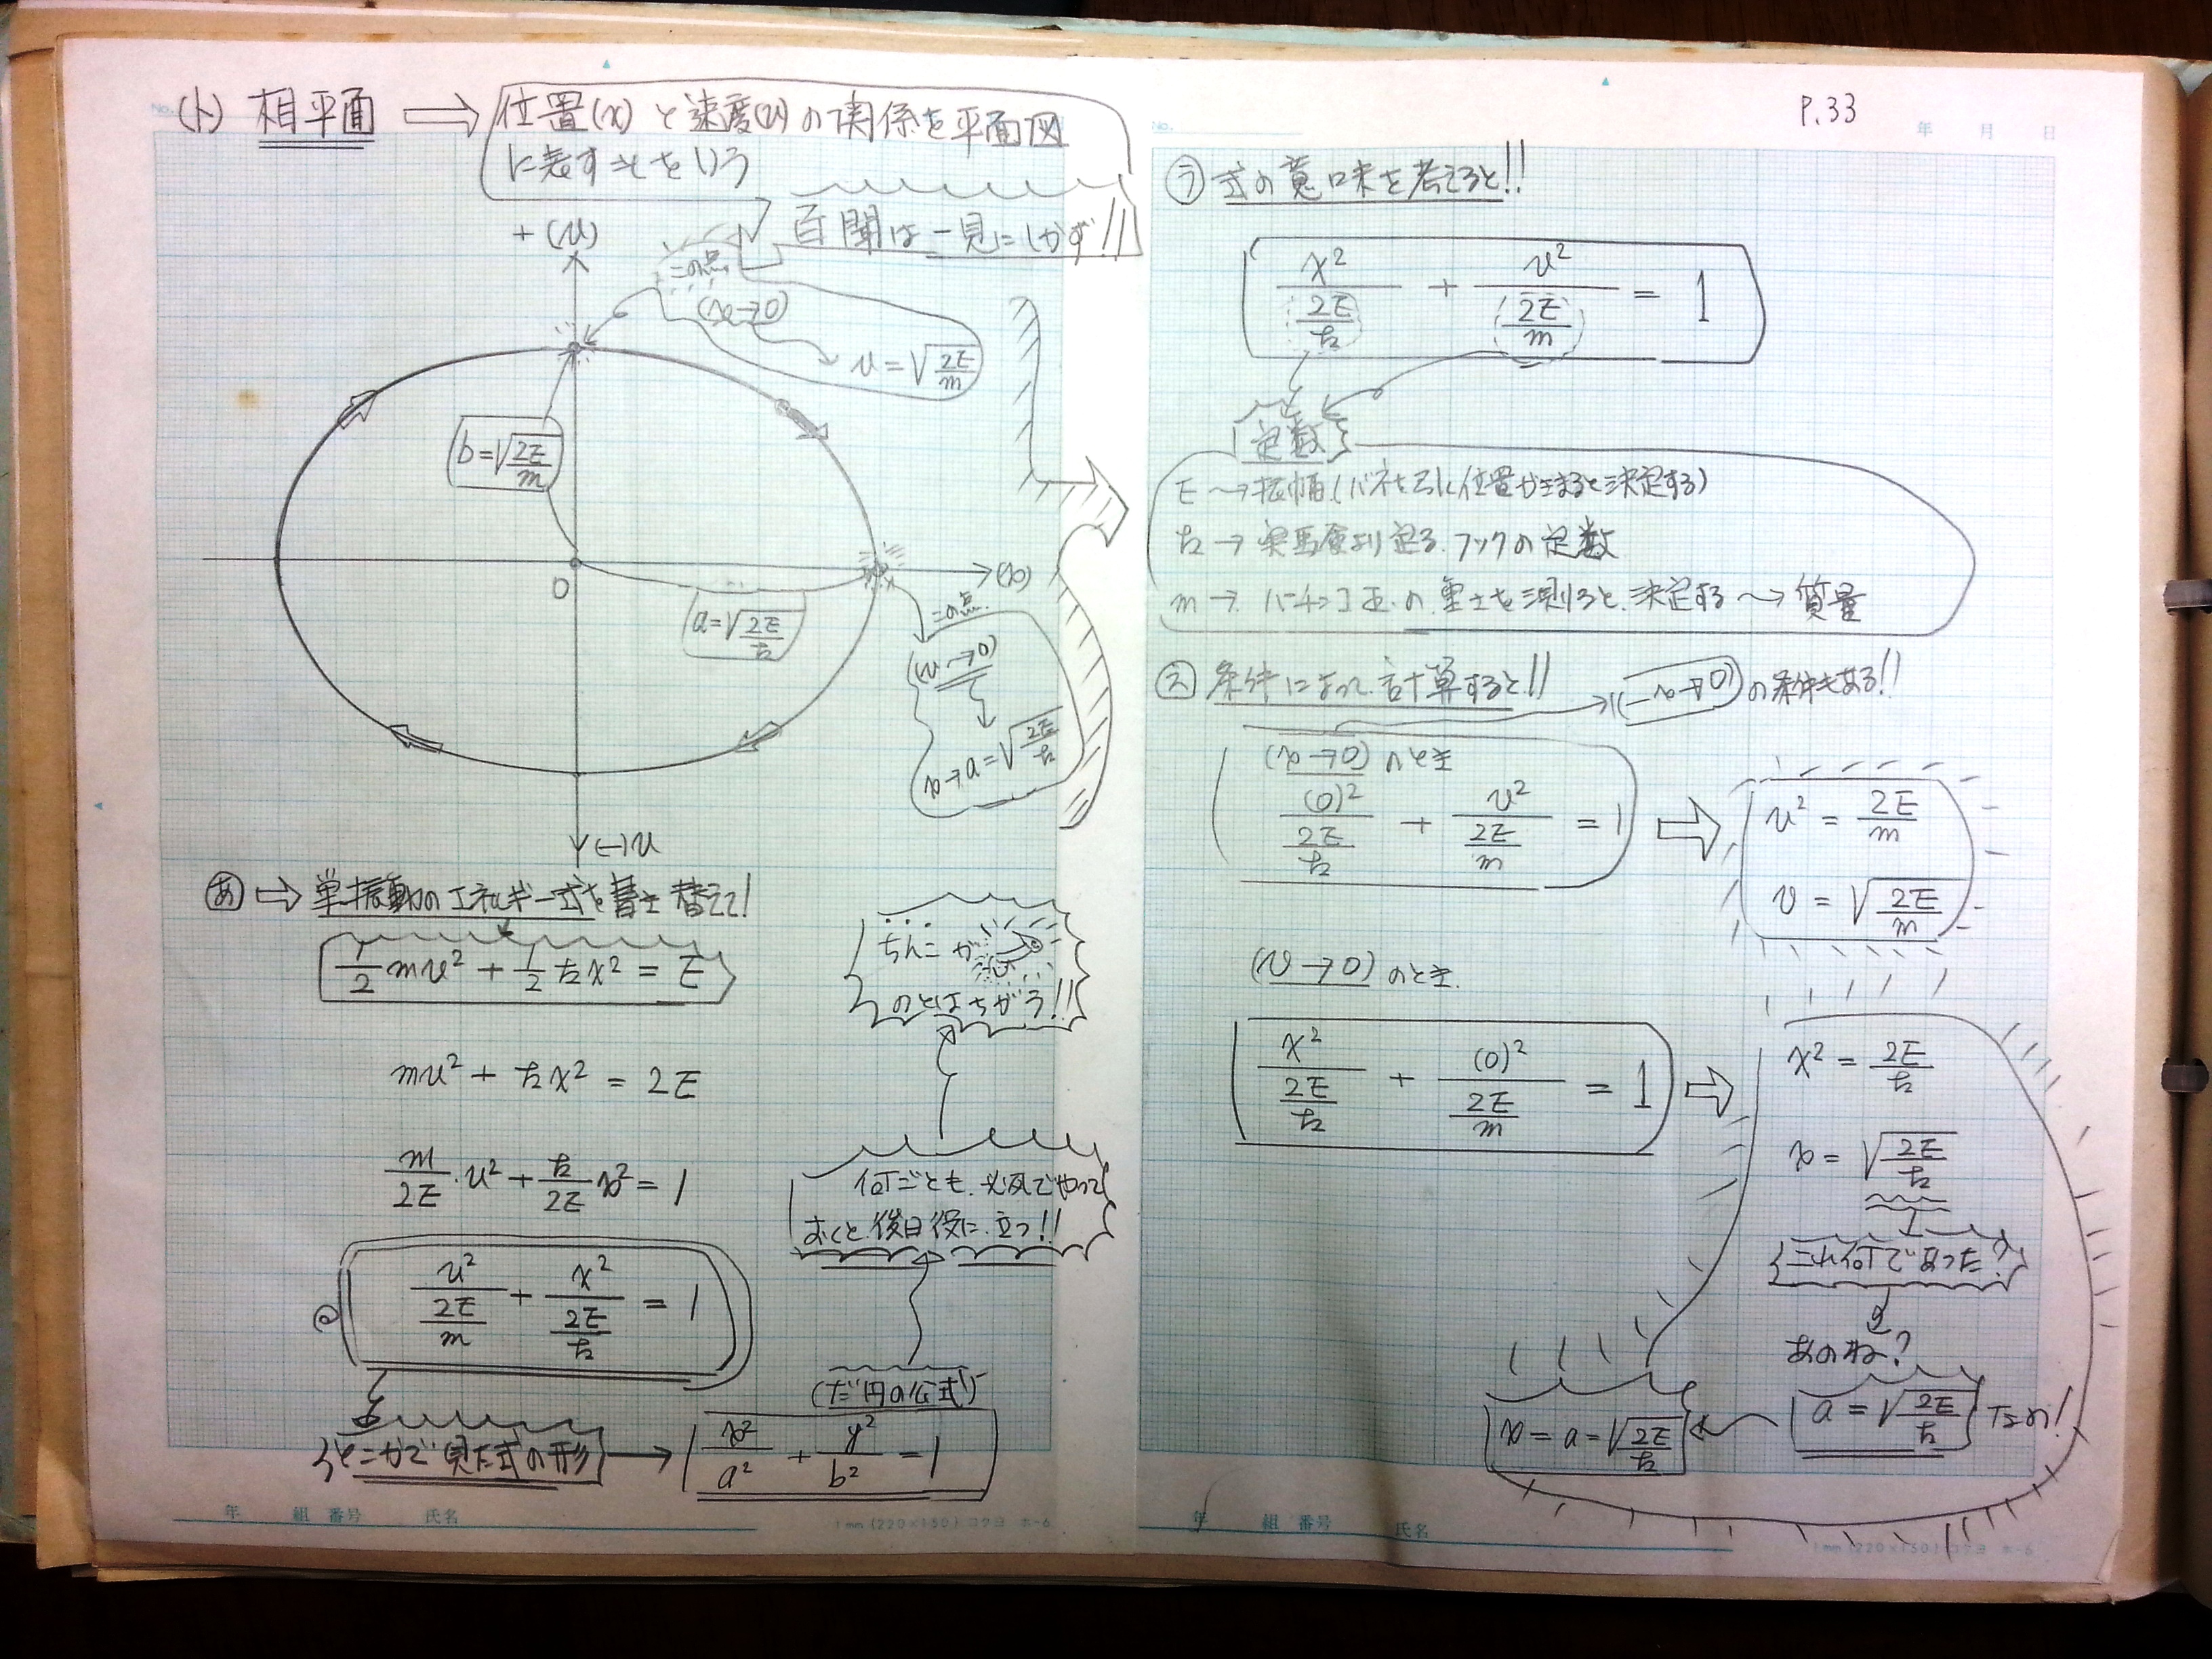 (ト) 相平面 ⇒ 位置(x)と速度(v)の関係を平面図
に表すことをいう
百聞は一見にしかず!!
+(v)
この点
(x→0)
v=√(2E/m)
b=√(2E/m)
O
(x)
a=√(2E/k)
この点
(v→0)
x→a=√(2E/k)
(-)v
あ ⇒ 単振動のエネルギー式を書き替えて!
1/2 mv² + 1/2 kx² = E
mv² + kx² = 2E
m/2E・v² + k/2E x² = 1
v²/(2E/m) + x²/(2E/k) = 1
どこかで見た式の形 → x²/a² + y²/b² = 1
(だ円の公式)
何ごとも、必死でやって
おくと後日役に立つ!!
ちんこが
のとはちがう!!
年 組 番号 氏名
1mm (220×150) コクヨ ホ-6
P.33
No.
年 月 日
ラ 式の意味を考えると!!
x²/(2E/k) + v²/(2E/m) = 1
定数
E 〜→ 振幅(バネを引く位置がきまると決定する)
k → 実験より定る フックの定数
m → パチンコ玉の重さを測ると決定する 〜→ 質量
ス 条件によって計算すると!! → (-x→0)の条件もある!!
(x→0)のとき
(0)²/(2E/k) + v²/(2E/m) = 1 ⇒ v² = 2E/m
v = √(2E/m)
(v→0)のとき
x²/(2E/k) + (0)²/(2E/m) = 1 ⇒ x² = 2E/k
x = √(2E/k)
これ何であった?
あのね?
a = √(2E/k) だよ!
x = a = √(2E/k)
年 組 番号 氏名
1mm (220×150) コクヨ ホ-6